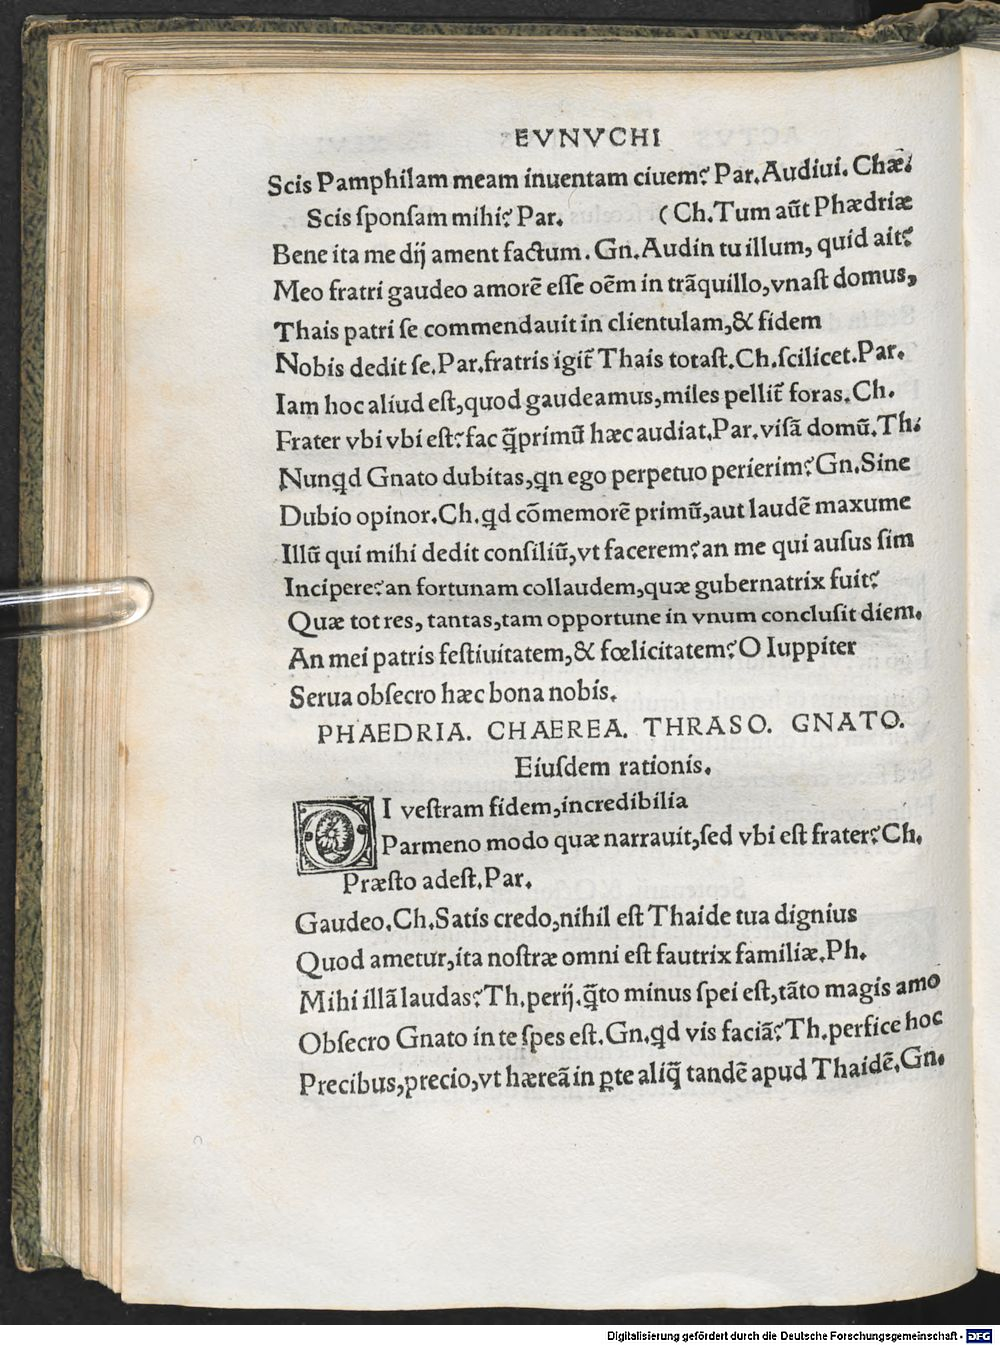 EVNVCHI
Scis Pamphilam meam inuentam ciuem? Par. Audiui. Chæ.
Scis ſponſam mihi? Par. (Ch. Tum aūt Phædriæ
Bene ita me dij ament factum. Gn. Audin tu illum, quid ait?
Meo fratri gaudeo amorē eſſe oēm in trāquillo, vnaſt domus,
Thais patri ſe commendauit in clientulam, & fidem
Nobis dedit ſe. Par. fratris igit̃ Thais totaſt. Ch. ſcilicet. Par.
Iam hoc aliud eſt, quod gaudeamus, miles pellit̃ foras. Ch.
Frater vbi vbi eſt? fac q̄primū hæc audiat. Par. viſā domū. Th.
Nunqd Gnato dubitas, qn ego perpetuo perierim? Gn. Sine
Dubio opinor. Ch. qd cōmemorē primū, aut laudē maxume
Illū qui mihi dedit conſiliū, vt facerem? an me qui auſus ſim
Incipere? an fortunam collaudem, quæ gubernatrix fuit?
Quæ tot res, tantas, tam opportune in vnum concluſit diem.
An mei patris feſtiuitatem, & fœlicitatem? O Iuppiter
Serua obſecro hæc bona nobis.
PHAEDRIA. CHAEREA. THRASO. GNATO.
Eiuſdem rationis.
DI veſtram fidem, incredibilia
Parmeno modo quæ narrauit, ſed vbi eſt frater? Ch.
Præſto adeſt. Par.
Gaudeo. Ch. Satis credo, nihil eſt Thaide tua dignius
Quod ametur, ita noſtræ omni eſt fautrix familiæ. Ph.
Mihi illā laudas? Th. perij. q̄to minus ſpei eſt, tāto magis amo
Obſecro Gnato in te ſpes eſt. Gn. qd vis faciā? Th. perfice hoc
Precibus, precio, vt hæreā in ꝑte aliq̄ tandē apud Thaidē. Gn.
Digitalisierung gefördert durch die Deutsche Forschungsgemeinschaft - DFG